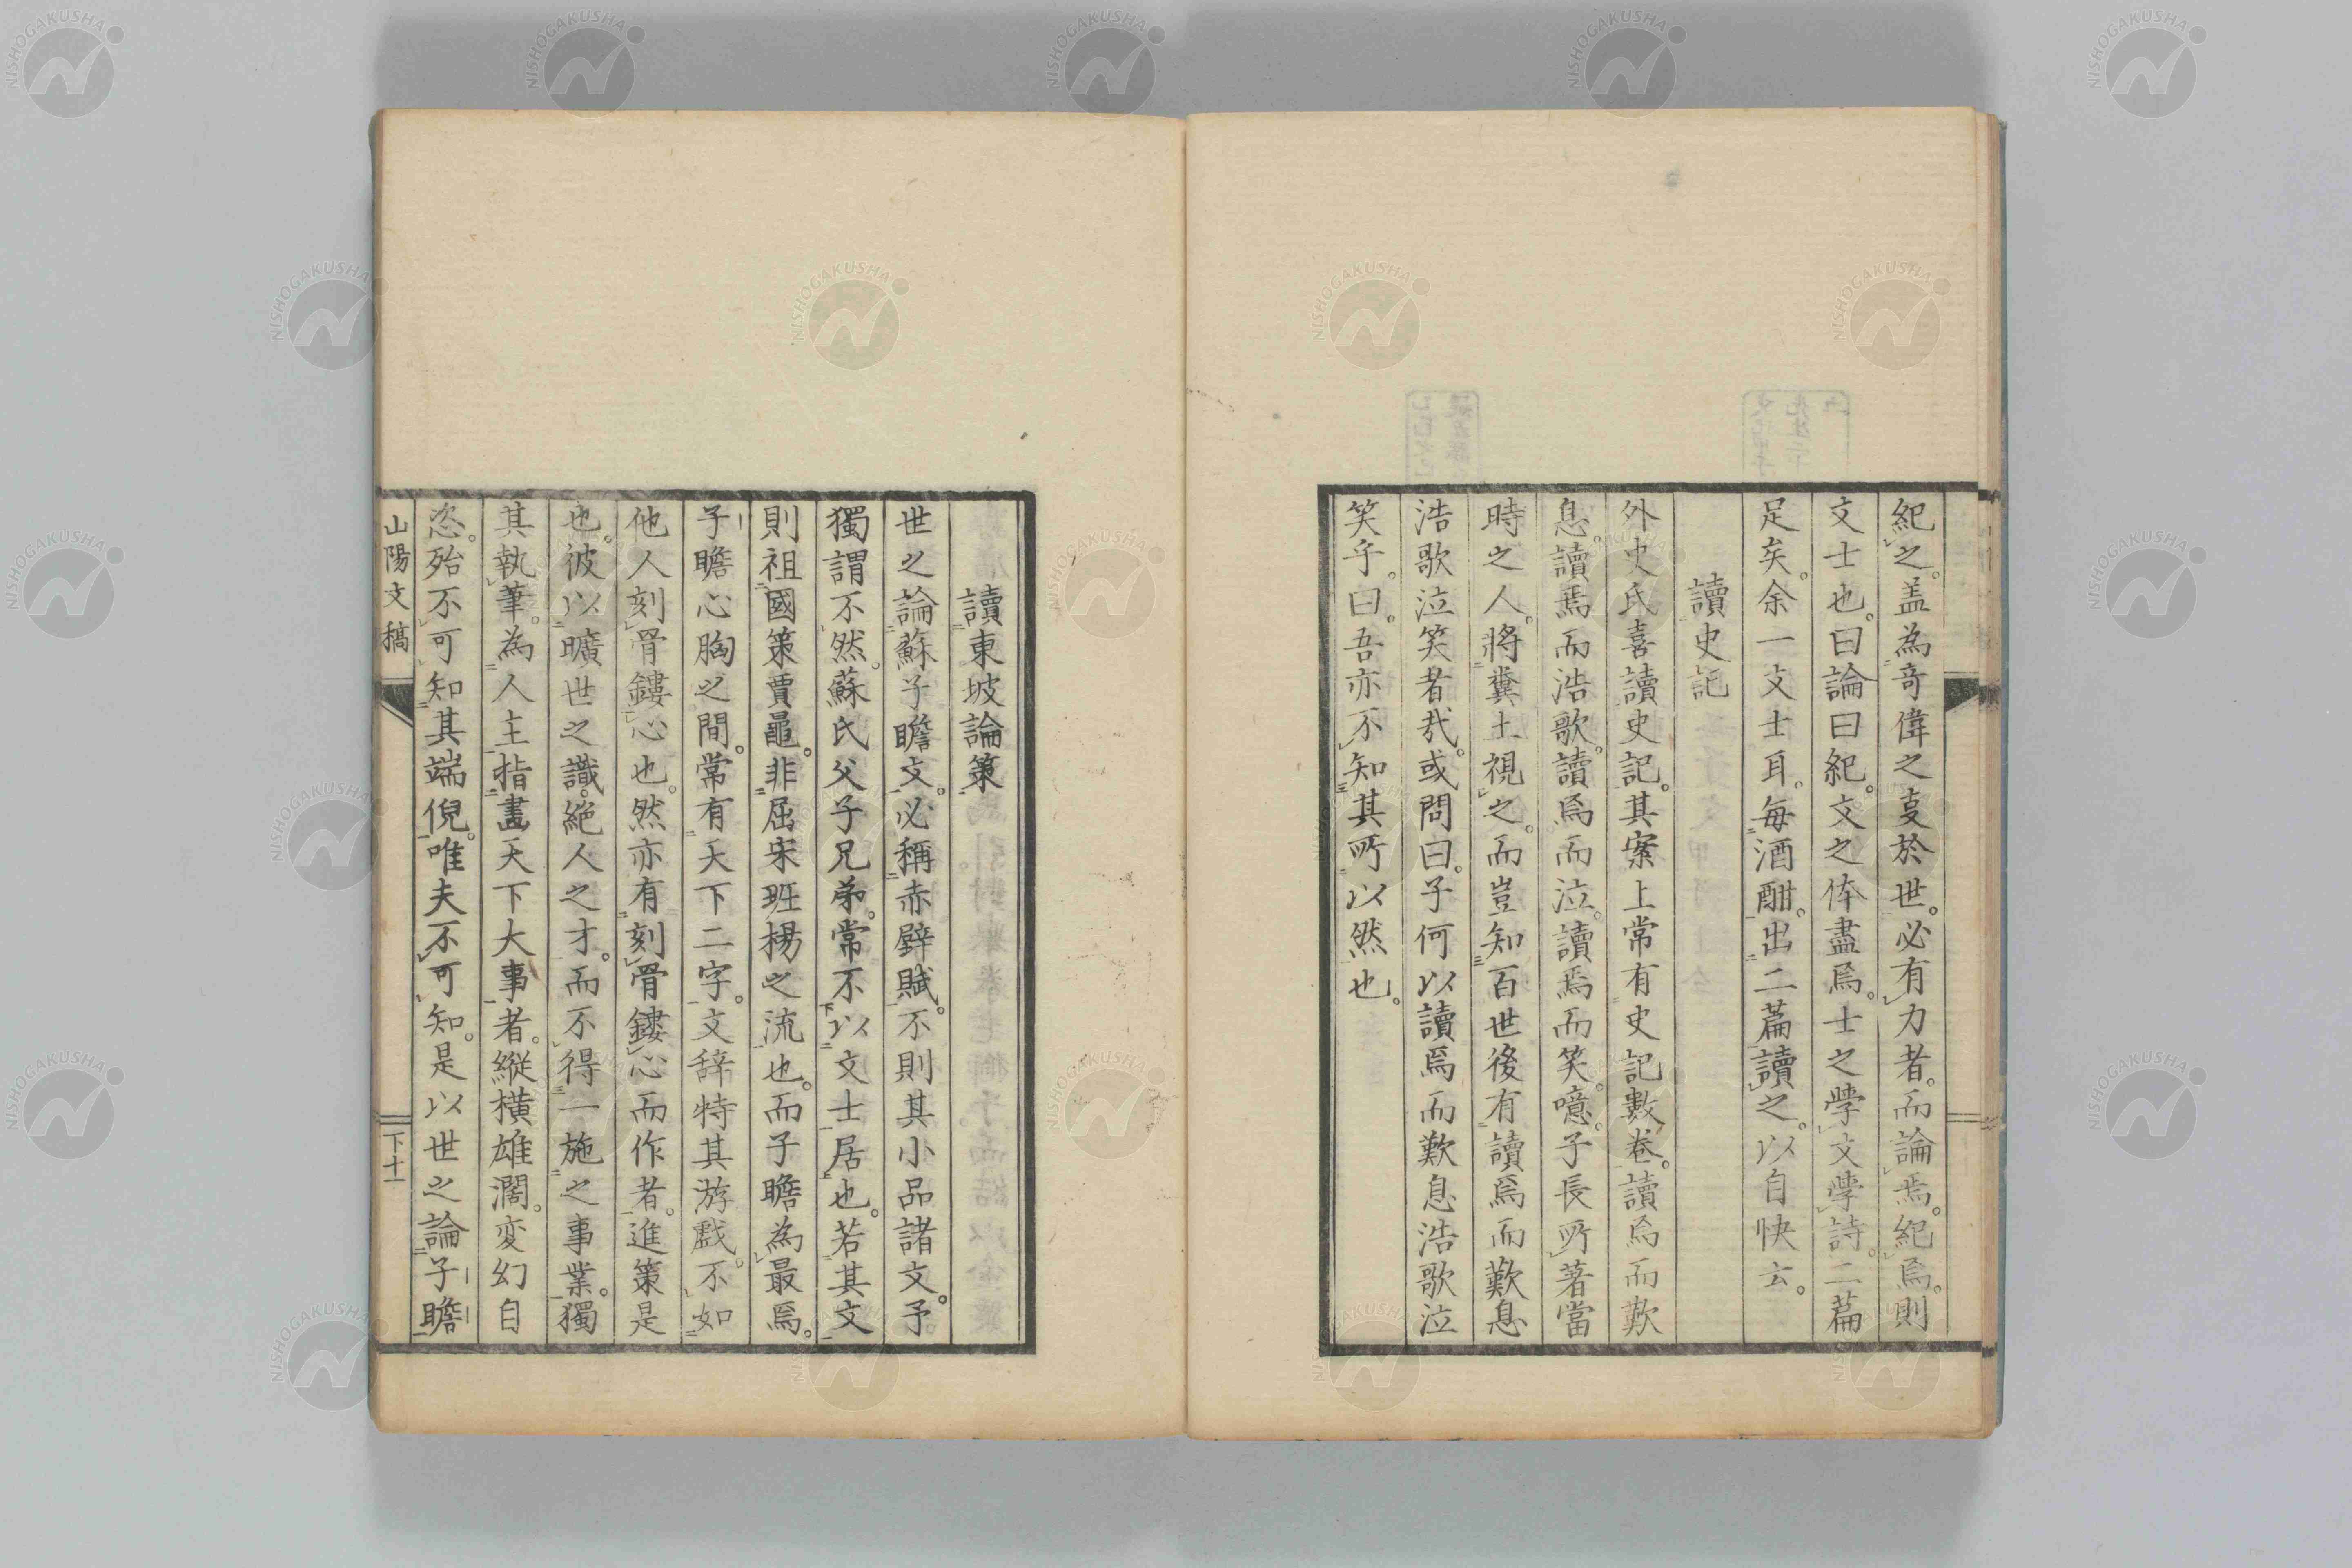 紀之。盖為奇偉之事於世。必有力者。而論焉。紀焉。則
文士也。曰論曰紀。文之体盡焉。士之學文學詩。二篇
足矣。余一文士耳。每酒酣。出二篇讀之。以自快云。
讀史記
外史氏喜讀史記。其案上常有史記數卷。讀焉而歎
息。讀焉而浩歌。讀焉而泣。讀焉而笑。噫。子長所著當
時之人。將糞土視之。而豈知百世後有讀焉而歎息
浩歌泣笑者哉。或問曰。子何以讀焉而歎息浩歌泣
笑乎。曰。吾亦不知其所以然也。
讀東坡論策
世之論蘇子瞻文。必稱赤壁賦。不則其小品諸文。予
獨謂不然。蘇氏父子兄弟。常不以文士居也。若其文
則祖國策賈鼂。非屈宋班楊之流也。而子瞻為最焉。
子瞻心胸之間。常有天下二字。文辞特其游戲。不如
他人刻骨鏤心也。然亦有刻骨鏤心而作者。進策是
也。彼以曠世之識。絶人之才。而不得一施之事業。獨
其執筆。為人主指畫天下大事者。縦横雄濶。変幻自
恣。殆不可知其端倪。唯夫不可知。是以世之論子瞻
山陽文稿
下十一
NISHOGAKUSHA